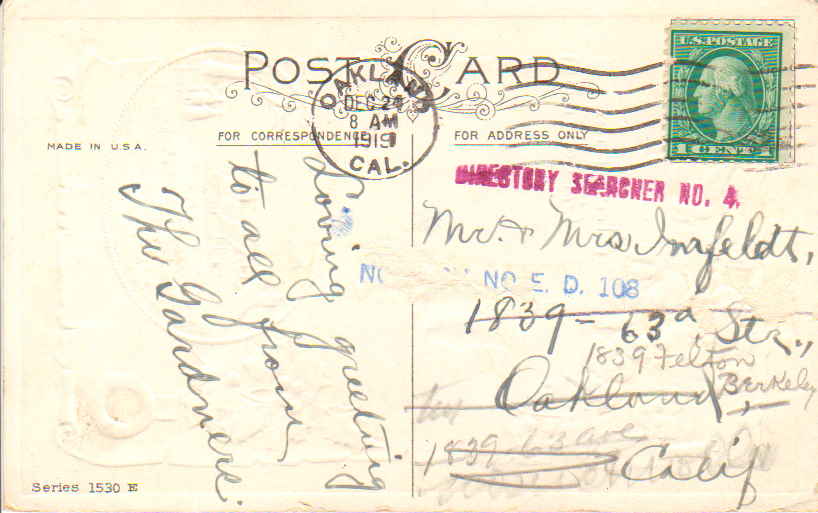 POST CARD
OAKLAND
DEC 24
8 AM
1919
CAL.
U.S. POSTAGE
1 CENT
MADE IN U.S.A.
FOR CORRESPONDENCE
FOR ADDRESS ONLY
DIRECTORY SEARCHER NO. 4.
Loving greeting
to all from
The Gardners.
Mr. & Mrs Imfeldt,
NO E. D. 108
1839 - 63d Str.,
1839 Felton
Berkeley
Oakland,
1839 63 Ave
Calif
Series 1530 E